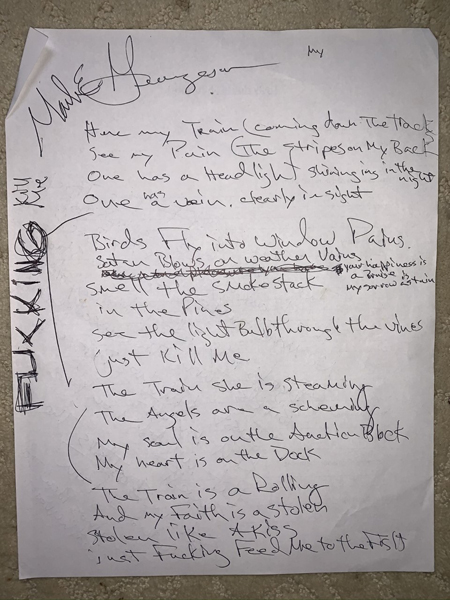 My
Mark E
Here my Train (coming down The track
See my Pain (The stripes on My Back
One has a Headlight shinning in the night
One has a vein. clearly in sight
Birds Fly into window Pains.
Satan Blows on weather Vains
your happiness is
a Bruise is
my sorrow a stain
smell the smokestack
in the Pines
see the light Bulb through the vines
just Kill Me
The Train she is steaming
The Angels are a scheming
My soul is on the Auction Block
My heart is on the Dock
The Train is a Rolling
And my Faith is a stolen
stolen like A kiss
just Fucking Feed Me to the Fish
FUKKING Kill Me